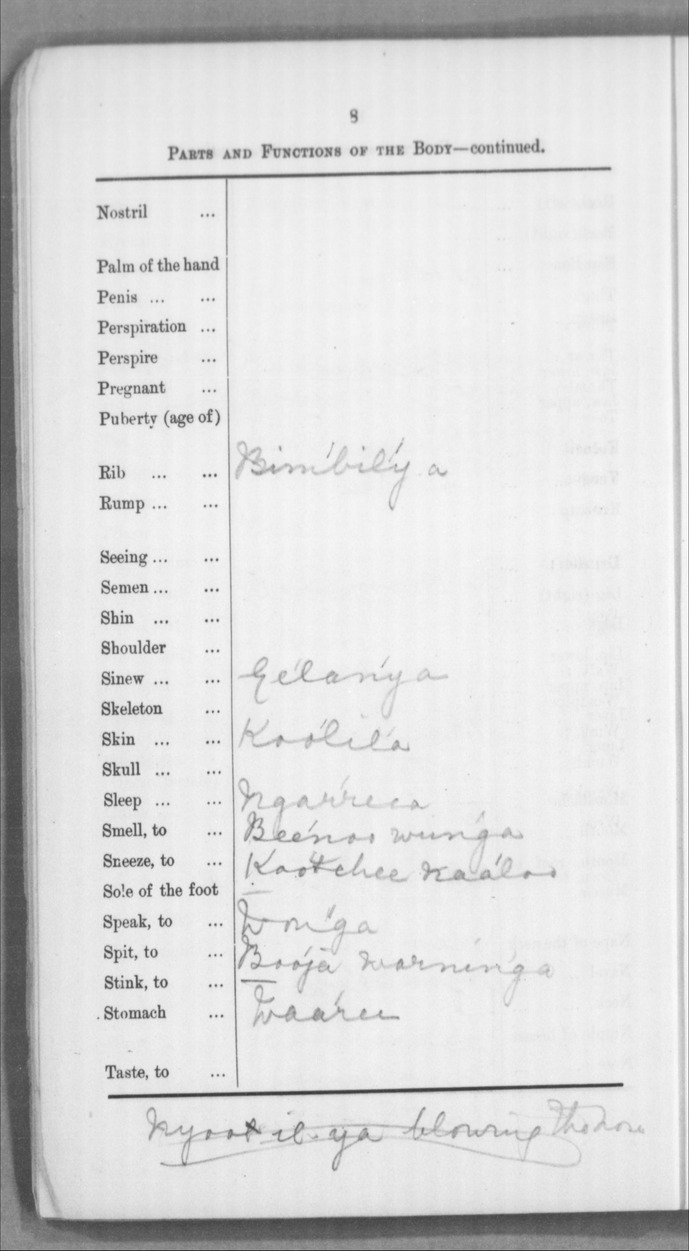 8
PARTS AND FUNCTIONS OF THE BODY—continued.
Nostril ...
Palm of the hand
Penis ... ...
Perspiration ...
Perspire ...
Pregnant ...
Puberty (age of)
Rib ... ... Bim'bil'y a
Rump ... ...
Seeing ... ...
Semen ... ...
Shin ... ...
Shoulder ...
Sinew ... ... Gélan'ya
Skeleton ...
Skin ... ... Koólil'a
Skull ... ...
Sleep ... ... Ngar'reca
Smell, to ... Beé'noo wun'ga
Sneeze, to ... Koótchee naáloo
Sole of the foot —
Speak, to ... Won'ga
Spit, to ... Boója wornin'ga
Stink, to ... —
Stomach ... Waá'ree
Taste, to ...
Nyoot il ya blowing the nose